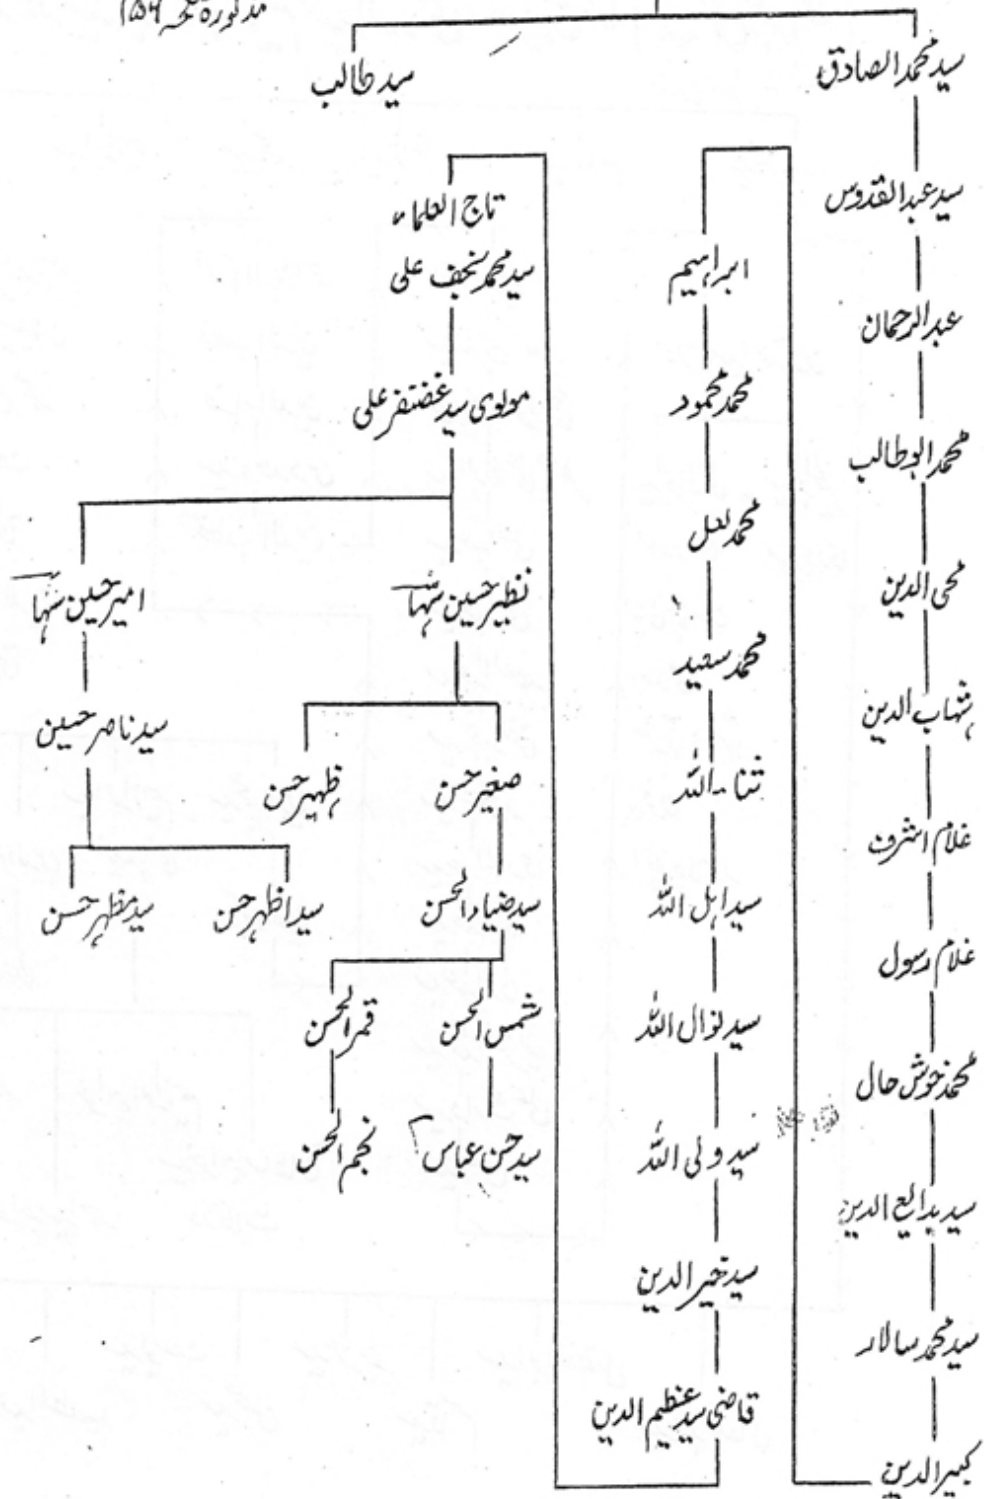 مذکورہ صفحہ ۱۵۶
سید محمد الصادق
سید طالب
سید عبدالقدوس
عبدالرحمان
محمد ابوطالب
محی الدین
شہاب الدین
غلام اشرف
غلام رسول
محمد خوش حال
سید بدالع الدین
سید محمد سالار
کبیر الدین
ابراہیم
محمد محمود
محمد لعل
محمد سعید
ثناء اللہ
سید اہل اللہ
سید نوال اللہ
سید ولی اللہ
سید خیر الدین
قاضی سید عظیم الدین
تاج العلماء
سید محمد نجف علی
مولوی سید غضنفر علی
نظیر حسین سہا
امیر حسین سہا
صغیر حسن
ظہیر حسن
سید ناصر حسین
سید ضیاء الحسن
سید اظہر حسن
سید مظہر حسن
شمس الحسن
قمر الحسن
سید حسن عباس
نجم الحسن